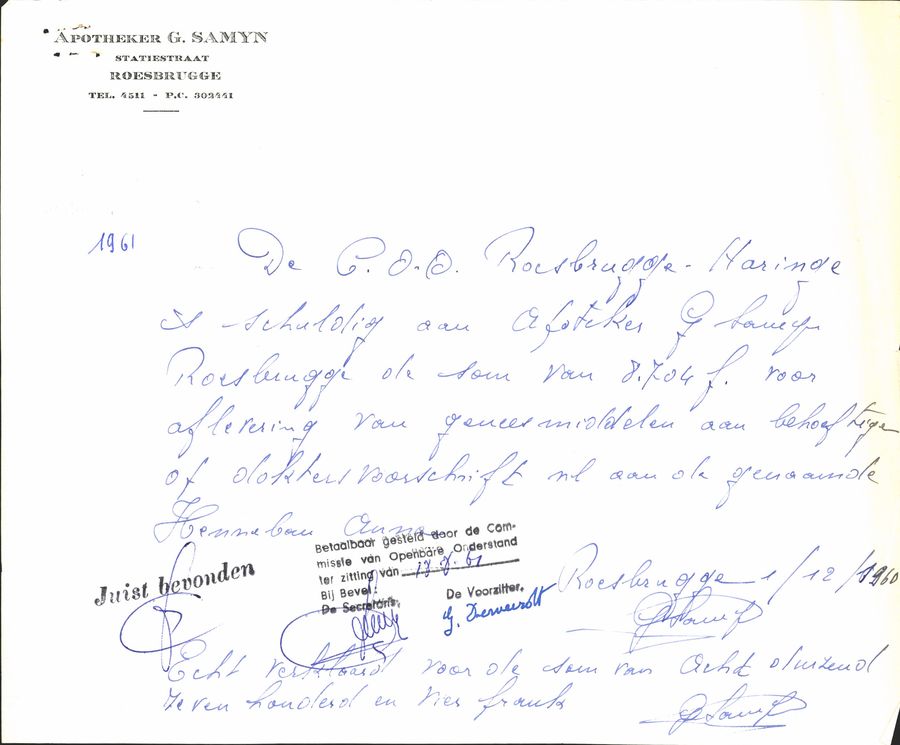 APOTHEKER G. SAMYN
STATIESTRAAT
ROESBRUGGE
TEL. 4511 - P.C. 302441
1961
De C.O.O. Roesbrugge-Haringe
is schuldig aan Apoteker G Samyn
Roesbrugge de som van 8.704 f. voor
aflevering van geneesmiddelen aan behoeftigen
of doktersvoorschrift nl aan de genaamde
Anna
Betaalbaar gesteld door de Com-
missie van Openbare Onderstand
ter zitting van 17.7.61
Bij Bevel:
De Secretaris, De Voorzitter,
Juist bevonden
Roesbrugge 1/12/1960
GSamyn
Echt verklaard voor de som van Acht duizend
zeven honderd en vier frank
GSamyn